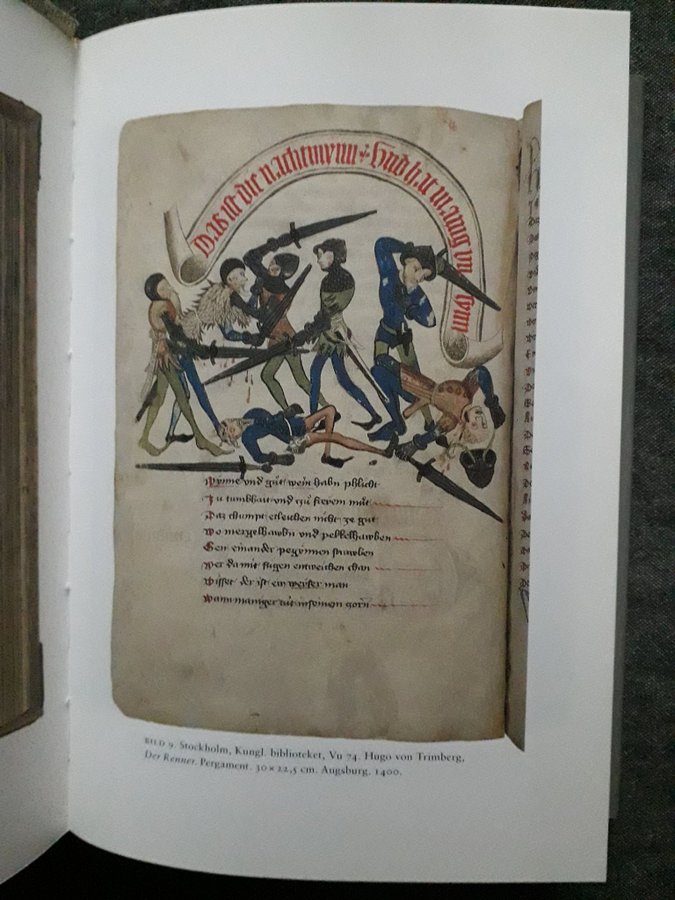 Das ist die nachtmynn + Hud hat manig vn synn
Mynne vnd gůt wein habn phlicht
Zu tumbhait vnd czu freyem můt
Daz chumpt etleuben nicht ze gut
Wo mergelhawbn vnd pekkelhawben
Gen einander pegynnen snawben
Wer da mit fugen entweichen chan
Wisset der ist ein weyser man
Wann maniger tůt in seinem zorn
BILD 9. Stockholm, Kungl. biblioteket, Vu 74. Hugo von Trimberg,
Der Renner. Pergament. 30 × 22,5 cm. Augsburg. 1400.